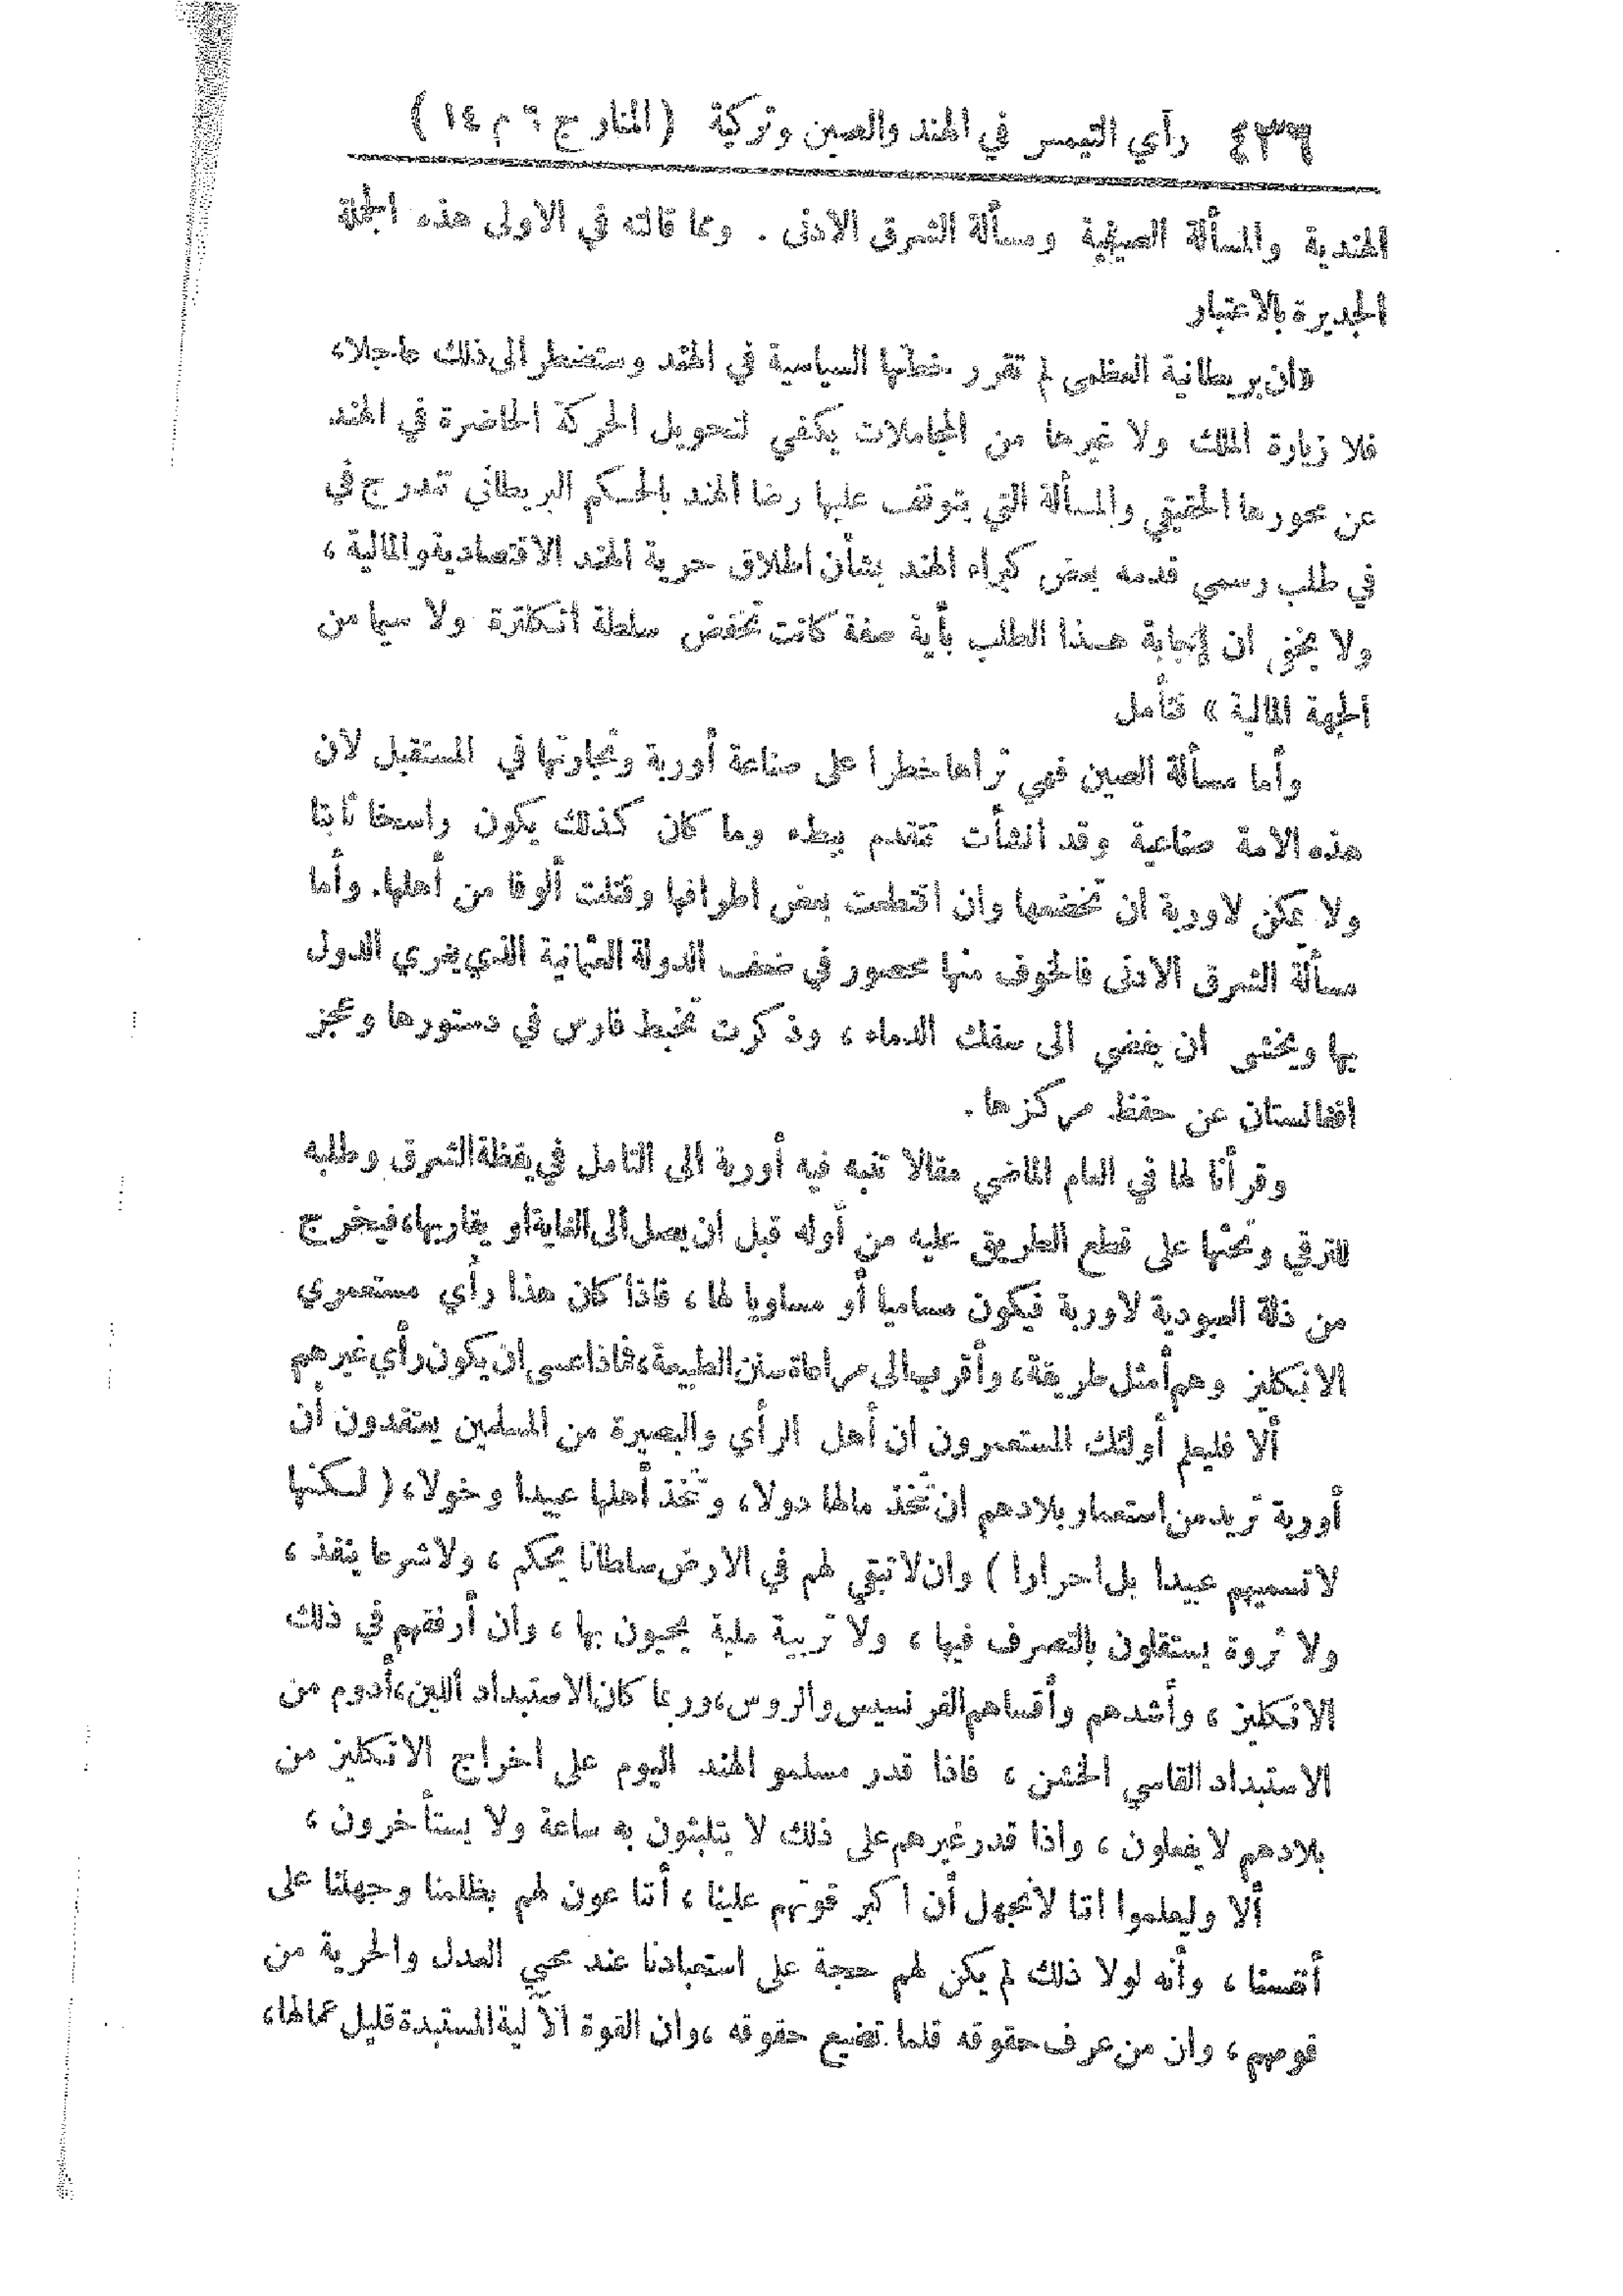 ٤٣٦ رأي التيمس في الهند والصين وتركية (المنار ج ٦ م ١٤)
الهندية والمسألة الصينية ومسألة الشرق الادنى . ومما قالته في الاولى هذه الجملة
الجديرة بالاعتبار
«ان بريطانية العظمى لم تقرر خطتها السياسية في الهند وستضطر الى ذلك عاجلا،
فلا زيارة الملك ولا غيرها من المجاملات يكفي لتحويل الحركة الحاضرة في الهند
عن محورها الحقيقي والمسألة التي يتوقف عليها رضا الهند بالحكم البريطاني تندرج في
في طلب رسمي قدمه بعض كبراء الهند بشأن اطلاق حرية الهند الاقتصادية والمالية ،
ولا يخفى ان إجابة هذا الطلب بأية صفة كانت تخفض سلطة انكلترة ولا سيما من
الجهة المالية » فتأمل
وأما مسألة الصين فهي تراها خطرا على صناعة أوربة وتجارتها في المستقبل لان
هذه الامة صناعية وقد انشأت تتقدم ببطء وما كان كذلك يكون راسخا ثابتا
ولا يمكن لاوربة ان تخضعها وان اقتطعت بعض اطرافها وقتلت ألوفا من أهلها. وأما
مسألة الشرق الادنى فالخوف منها محصور في ضعف الدولة العثمانية الذي يغري الدول
بها ويخشى ان يفضي الى سفك الدماء ، وذكرت تخبط فارس في دستورها وعجز
افغانستان عن حفظ مركزها .
وقرأنا لها في العام الماضي مقالا تنبه فيه أوربة الى التامل في يقظة الشرق وطلبه
للترقي وتحثها على قطع الطريق عليه من أوله قبل ان يصل الى الغاية او يقاربها، فيخرج
من ذلة العبودية لاوربة فيكون مساميا أو مساويا لها ، فاذا كان هذا رأي مستعمري
الانكليز وهم أمثل طريقة، وأقرب الى مراعاة سنن الطبيعة، فماذا عسى ان يكون رأي غيرهم
ألا فليعلم أولئك المستعمرون ان أهل الرأي والبصيرة من المسلمين يعتقدون أن
أوربة تريد من استعمار بلادهم ان تتخذ مالها دولا، وتتخذ أهلها عبيدا وخولا، ( لكنها
لا تسميهم عبيدا بل احرارا ) وان لا تبقي لهم في الارض سلطانا يحكم ، ولا شرعا ينفذ ،
ولا ثروة يستقلون بالتصرف فيها ، ولا تربية ملية يحيون بها ، وان أرفقهم في ذلك
الانكليز ، وأشدهم وأقساهم الفرنسيس والروس، وربما كان الاستبداد اللين، أدوم من
الاستبداد القاسي الخشن ، فاذا قدر مسلمو الهند اليوم على اخراج الانكليز من
بلادهم لا يفعلون ، واذا قدر غيرهم على ذلك لا يتلبثون به ساعة ولا يستأخرون ،
ألا وليعلموا اننا لا نجهل أن اكبر قوتهم علينا ، أننا عون لهم بظلمنا وجهلنا على
أنفسنا ، وأنه لولا ذلك لم يكن لهم حجة على استعبادنا عند محبي العدل والحرية من
قومهم ، وان من عرف حقوقه قلما تضيع حقوقه ، وان القوة الآلية المستبدة قليل عمالها،